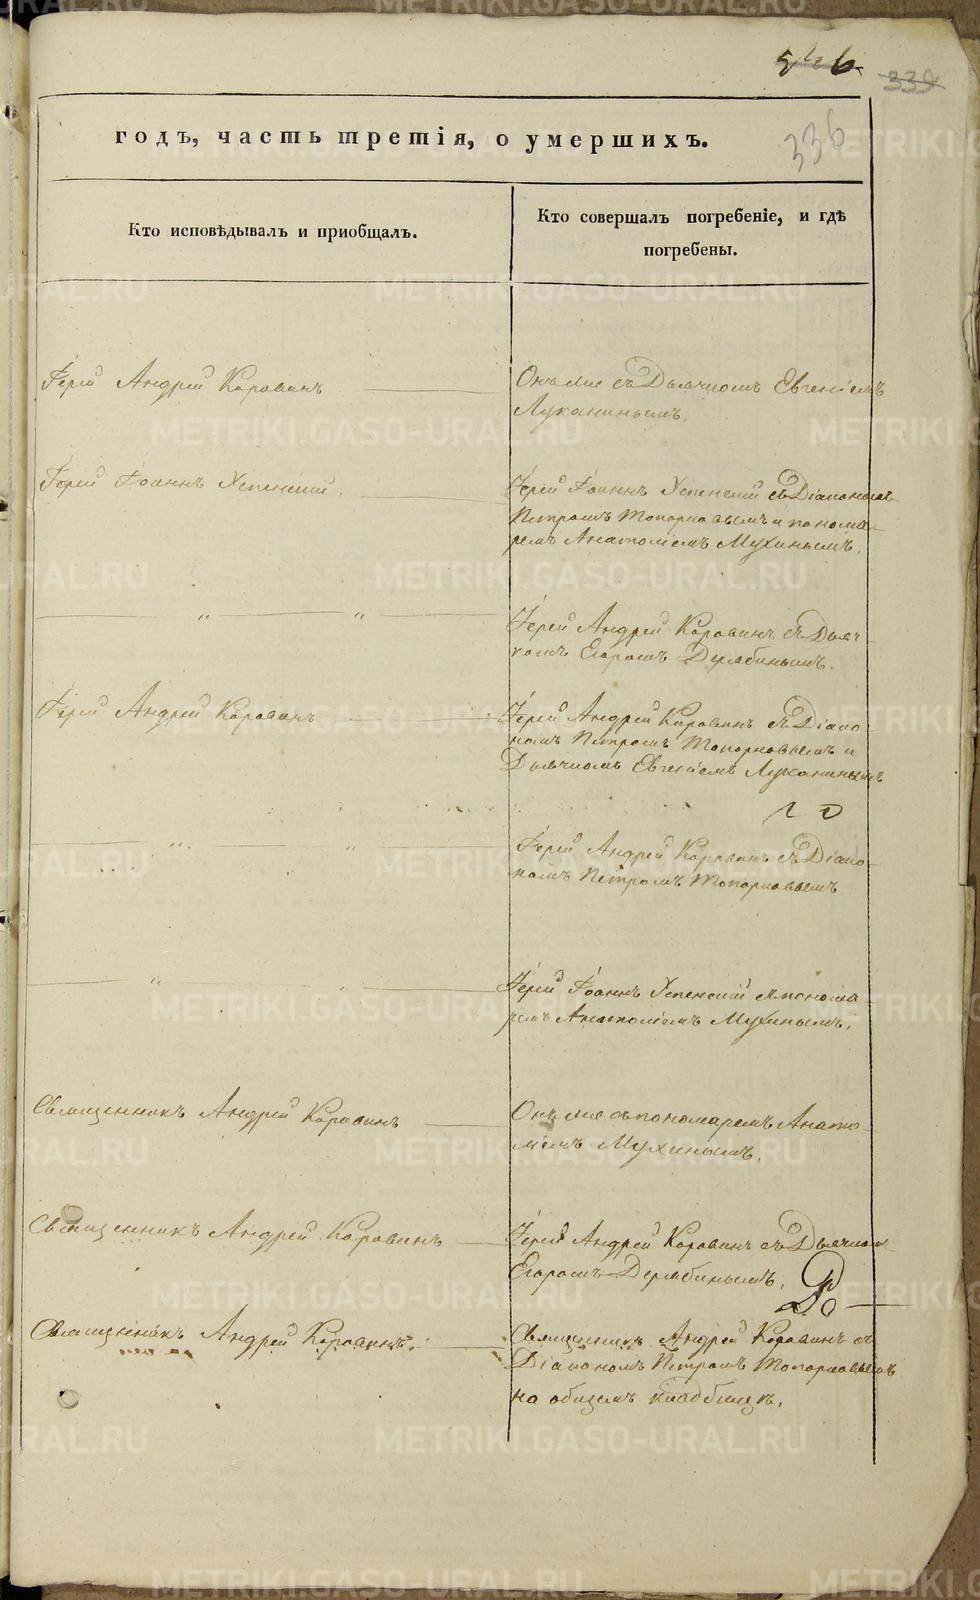 336
годъ, часть третія, о умершихъ.
Кто исповѣдывалъ и пріобщалъ.
Кто совершалъ погребеніе, и гдѣ
погребены.
Іерей Андрей Коровинъ
Онъ же съ Дьячкомъ Евгеніемъ
Луканинымъ.
Іерей Іоаннъ Успенскій.
Іерей Іоаннъ Успенскій съ Діакономъ
Петромъ Топорковымъ и понома-
ремъ Анатоліемъ Мухинымъ.
" "
Іерей Андрей Коровинъ съ Дьяч-
комъ Егоромъ Дерябинымъ.
Іерей Андрей Коровинъ
Іерей Андрей Коровинъ съ Діако-
номъ Петромъ Топорковымъ и
Дьячкомъ Евгеніемъ Луканинымъ
" "
Іерей Андрей Коровинъ съ Діако-
номъ Петромъ Топорковымъ
" "
Іерей Іоаннъ Успенскій съ понома
ремъ Анатоліемъ Мухинымъ.
Священникъ Андрей Коровинъ
Онъ же съ пономаремъ Анато-
ліемъ Мухинымъ.
Священникъ Андрей Коровинъ
Іерей Андрей Коровинъ съ Дьячкомъ
Егоромъ Дерябинымъ.
Священникъ Андрей Коровинъ.
Священникъ Андрей Коровинъ съ
Діакономъ Петромъ Топорковымъ
на общемъ кладбищѣ.
METRIKI.GASO-URAL.RU